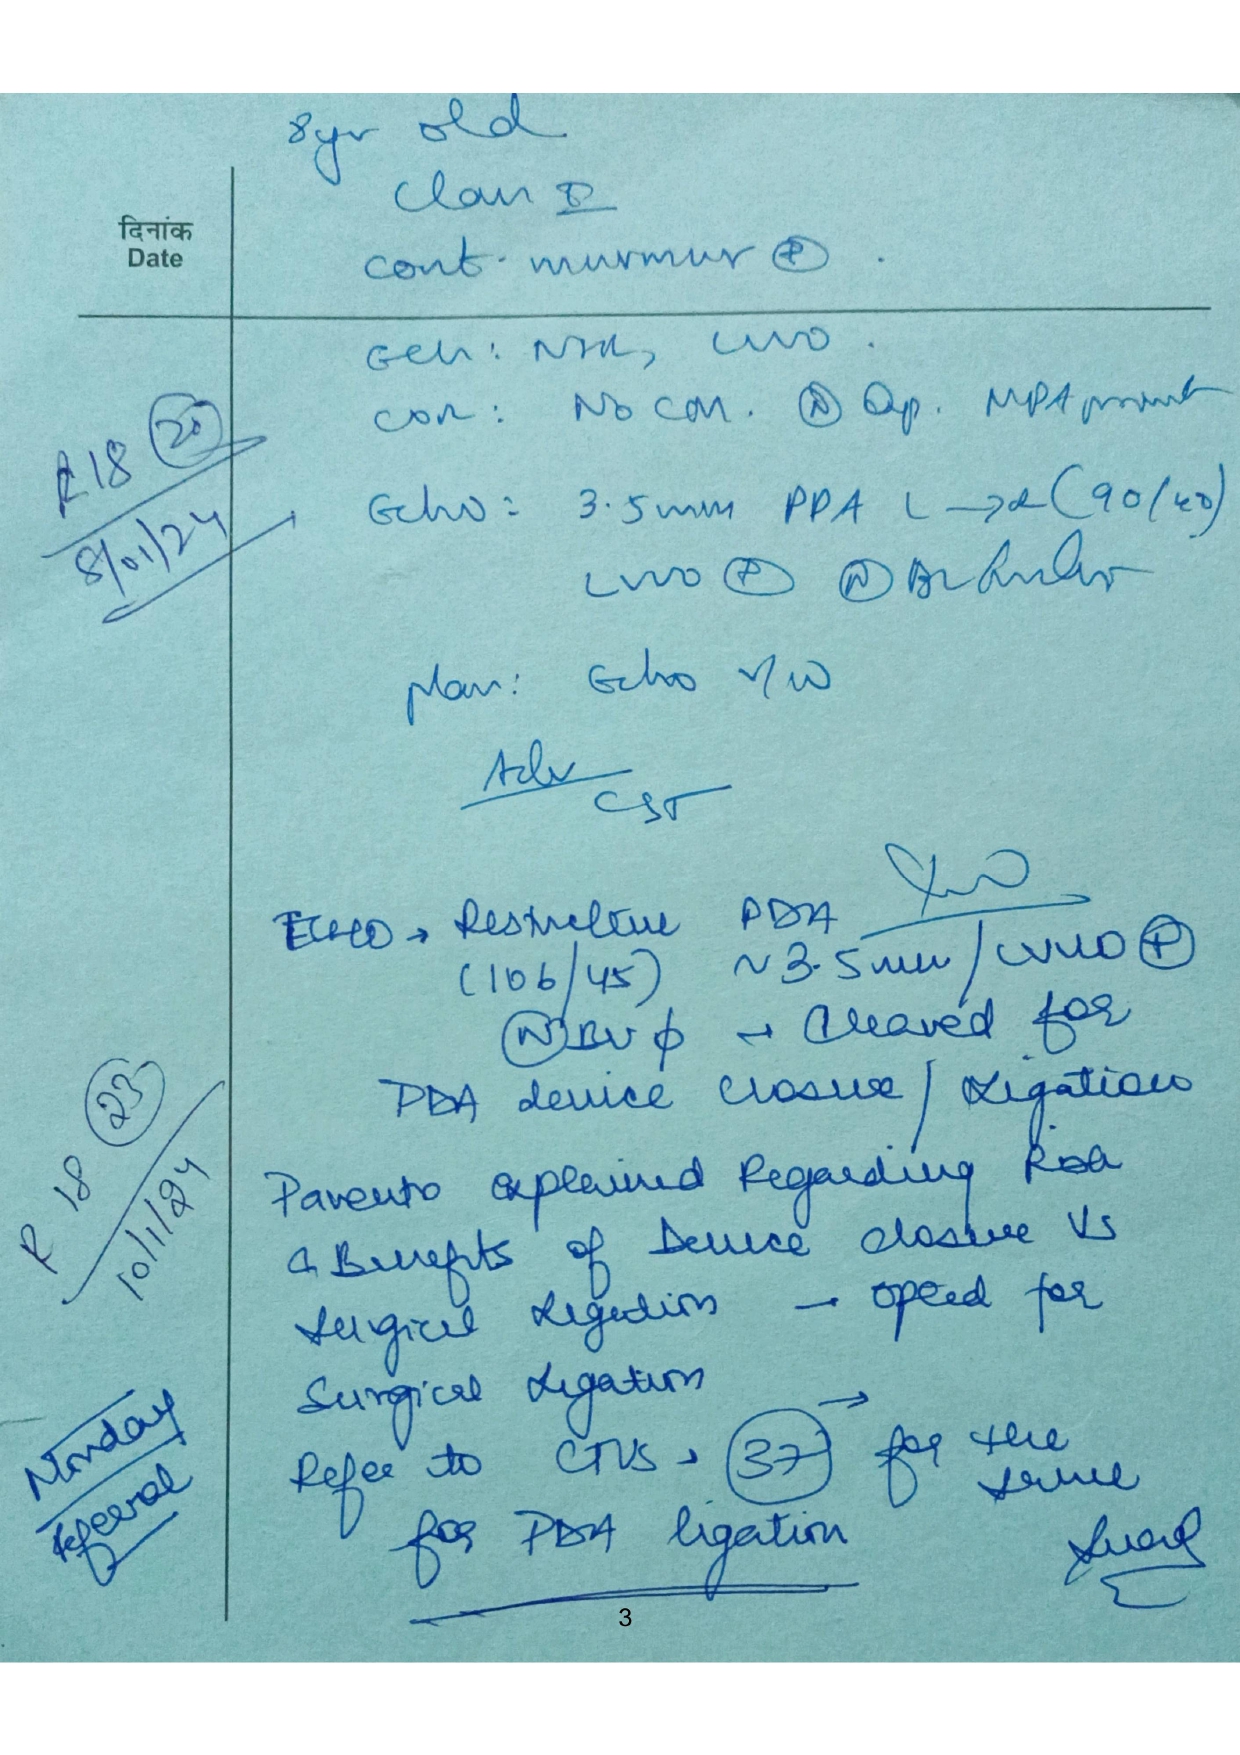 8yr old
Class II
cont. murmur (P) .
दिनांक
Date
ECG: NSR, LVVO .
CXR: No CM. (N) Qp. MPA prominent
R 18 (20)
8/01/24
Echo: 3.5mm PDA L → R (90/40)
LVVO (P) (N) Bi
plan: Echo r/w
Adv
CST
ECHO → Restrictive PDA
(106/45) ~3.5mm / LVVO (P)
(N) BV ϕ → Cleared for
PDA device closure / Ligation
R 18 (23)
10/1/24
Parents explained Regarding Risk
& Benefits of Device closure Vs
Surgical Ligation → opted for
Surgical Ligation
Refer to CTVS, (37) → for the
same
for PDA ligation
Monday
Referral
3